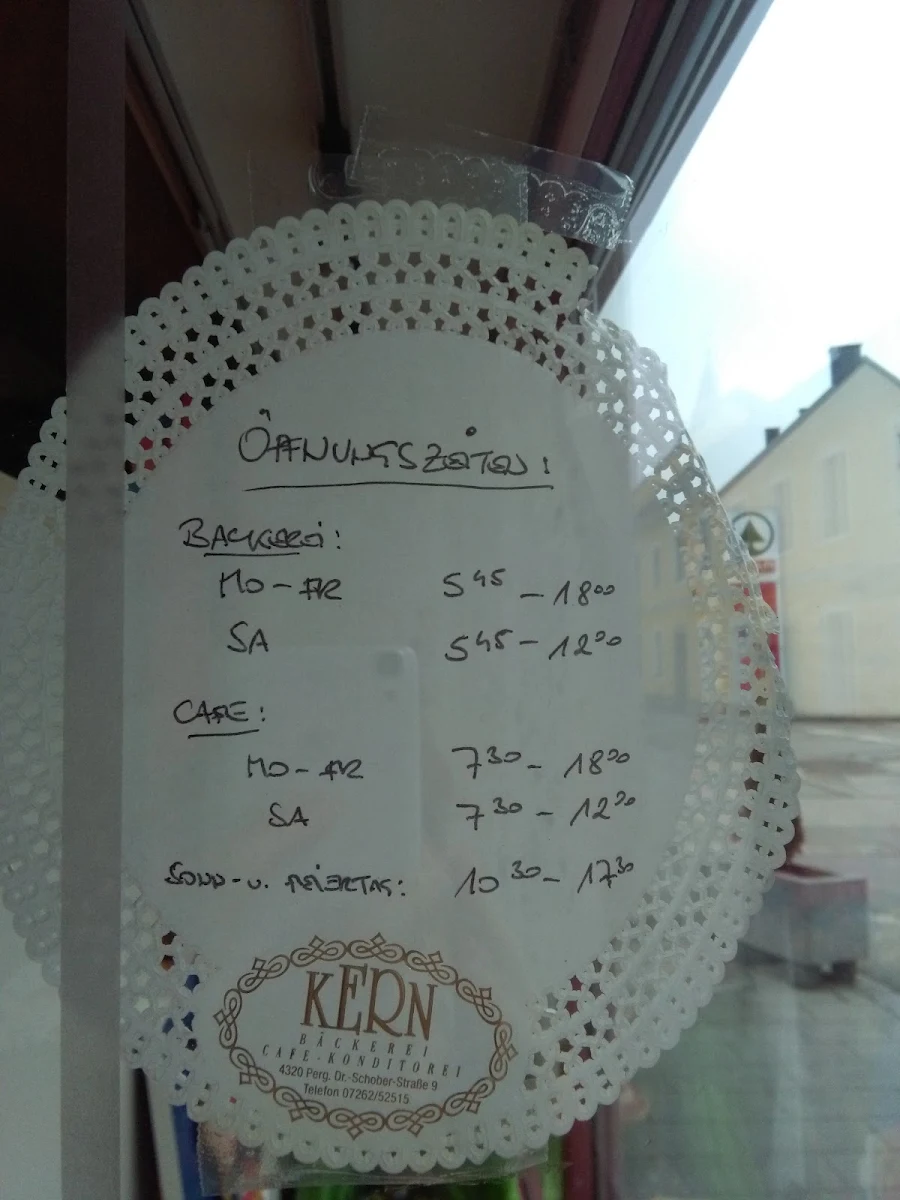 ÖFFNUNGSZEITEN:
BÄCKEREI:
MO-FR 5⁴⁵ - 18⁰⁰
SA 5⁴⁵ - 12⁰⁰
CAFE:
MO-FR 7³⁰ - 18⁰⁰
SA 7³⁰ - 12⁰⁰
SONN-u. FEIERTAG: 10³⁰ - 17³⁰
KERN
BÄCKEREI
CAFE-KONDITOREI
4320 Perg. Dr.-Schober-Straße 9
Telefon 07262/52515